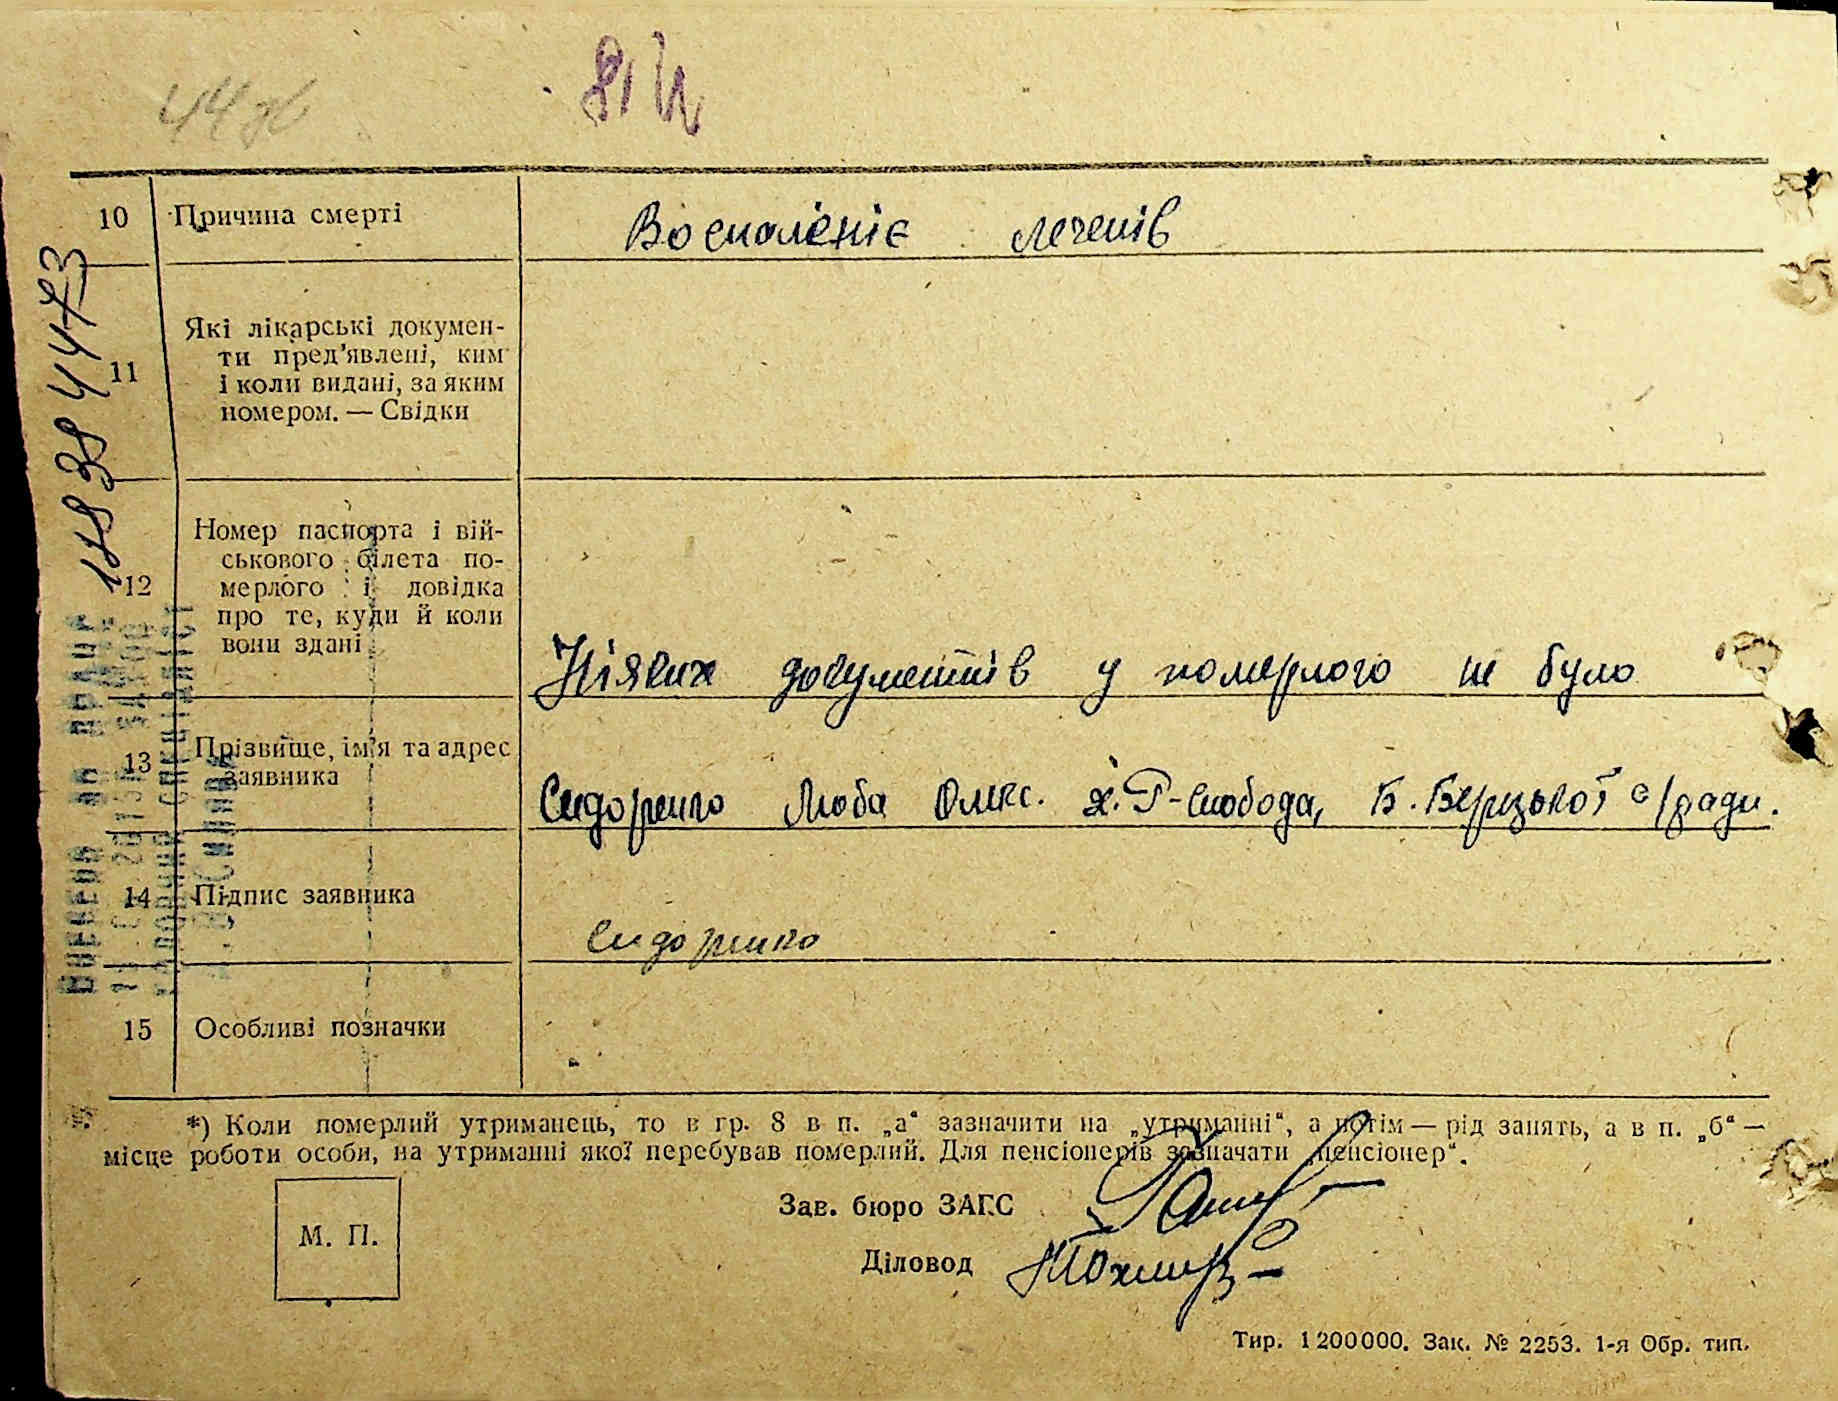 10 Причина смерті Воспаленіє легенів
11 Які лікарські докумен-
ти пред’явлені, ким
і коли видані, за яким
номером. — Свідки
12 Номер паспорта і вій-
ськового білета по-
мерлого і довідка
про те, куди й коли
вони здані Ніяких документів у померлого не було
13 Прізвище, ім’я та адрес Сидоренко Люба Олекс. х. Р-Слобода, Б. Берізької с/ради.
заявника
14 Підпис заявника Сидоренко
15 Особливі позначки
*) Коли померлий утриманець, то в гр. 8 в п. „а“ зазначити на „утриманні“, а потім — рід занять, а в п. „б“ —
місце роботи особи, на утриманні якої перебував померлий. Для пенсіонерів зазначати „пенсіонер“.
М. П.
Зав. бюро ЗАГС
Діловод
Тир. 1200000. Зак. № 2253. 1-я Обр. тип.